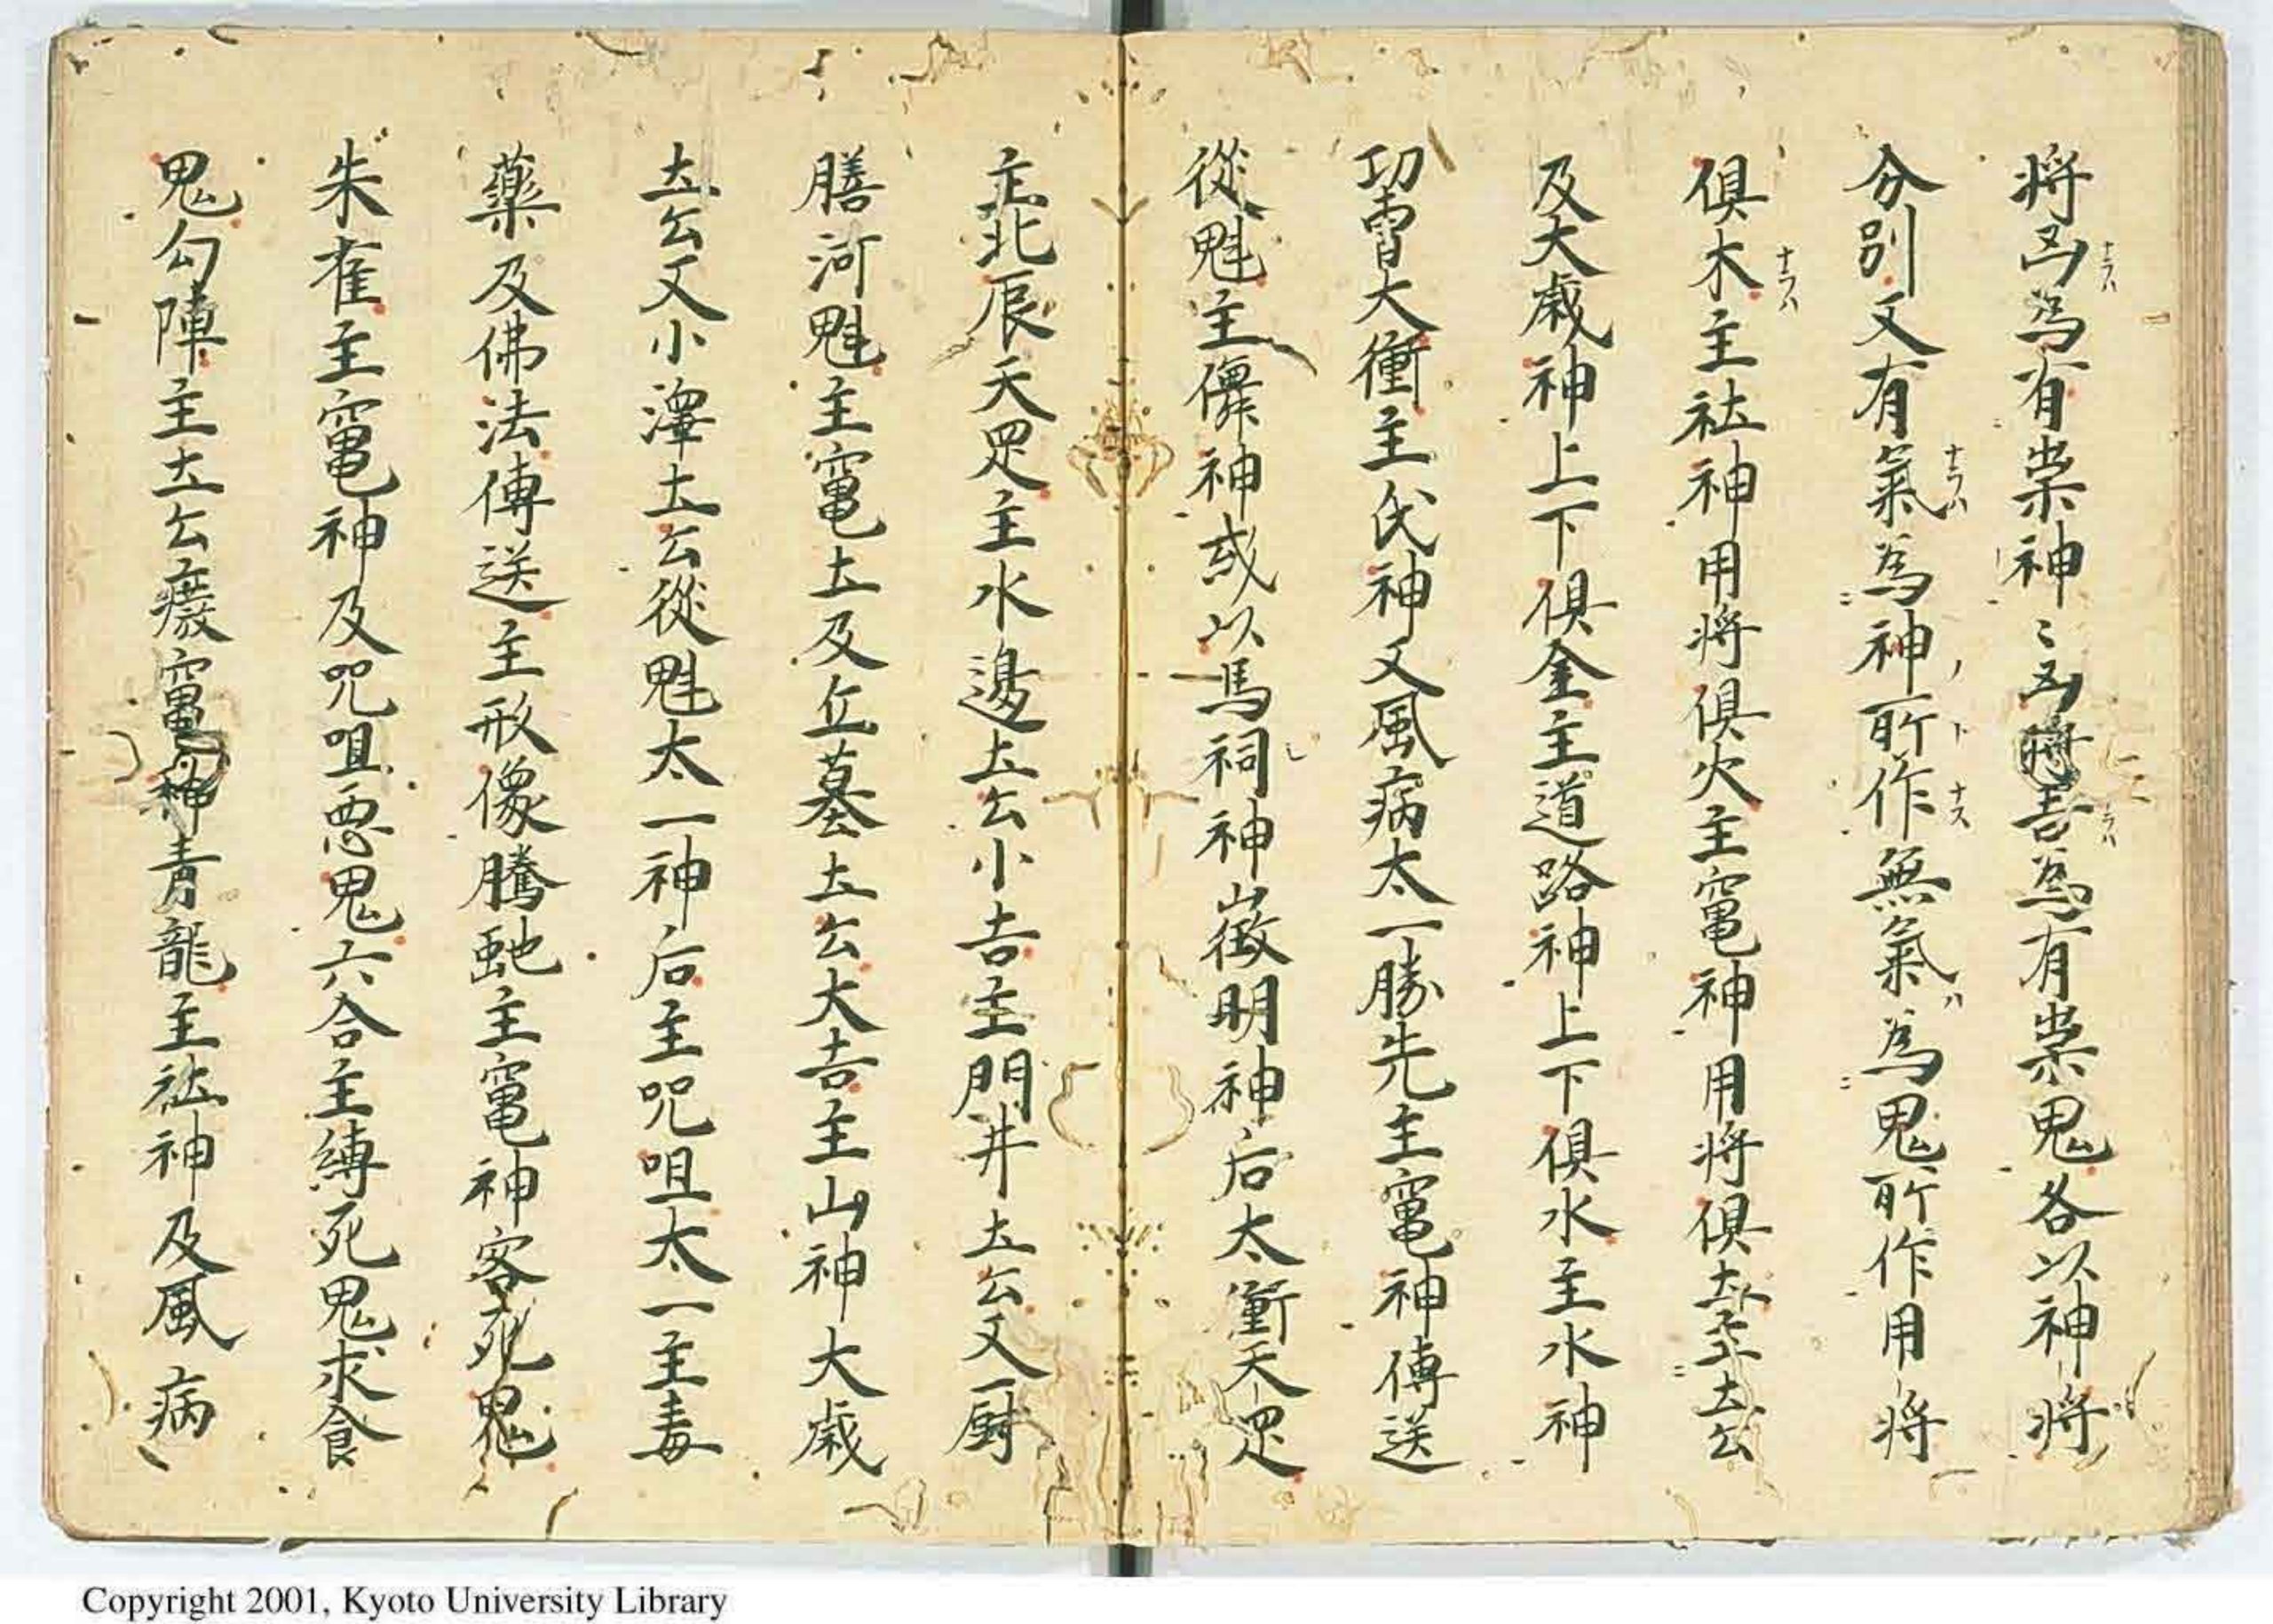 将凶為有祟神〻凶将吉為有祟鬼各以神将
分別又有氣為神所作無氣為鬼所作用将
倶木主社神用将倶火主竃神用将倶土主土公
及大歳神上下倶金主道路神上下倶水主水神
功曺大衝主氏神又風病太一勝先主竃神傳送
從魁主儛神或以馬祠神徴明神后太衝天罡
主北辰天罡主水邊土公小吉主門井土公又厨
膳河魁主竃土及丘墓土公大吉主山神大歳
土公又小澤土公從魁太一神后主咒咀太一主毒
藥及佛法傳送主形像騰虵主竃神客死鬼
朱雀主竃神及咒咀悪鬼六合主縛死鬼求食
鬼勾陣主土公癈竃神青龍主社神及風病
ナラハ
ナラハ
ナラハ
ラハ
ノ
ト
ナス
ハ
Copyright 2001, Kyoto University Library